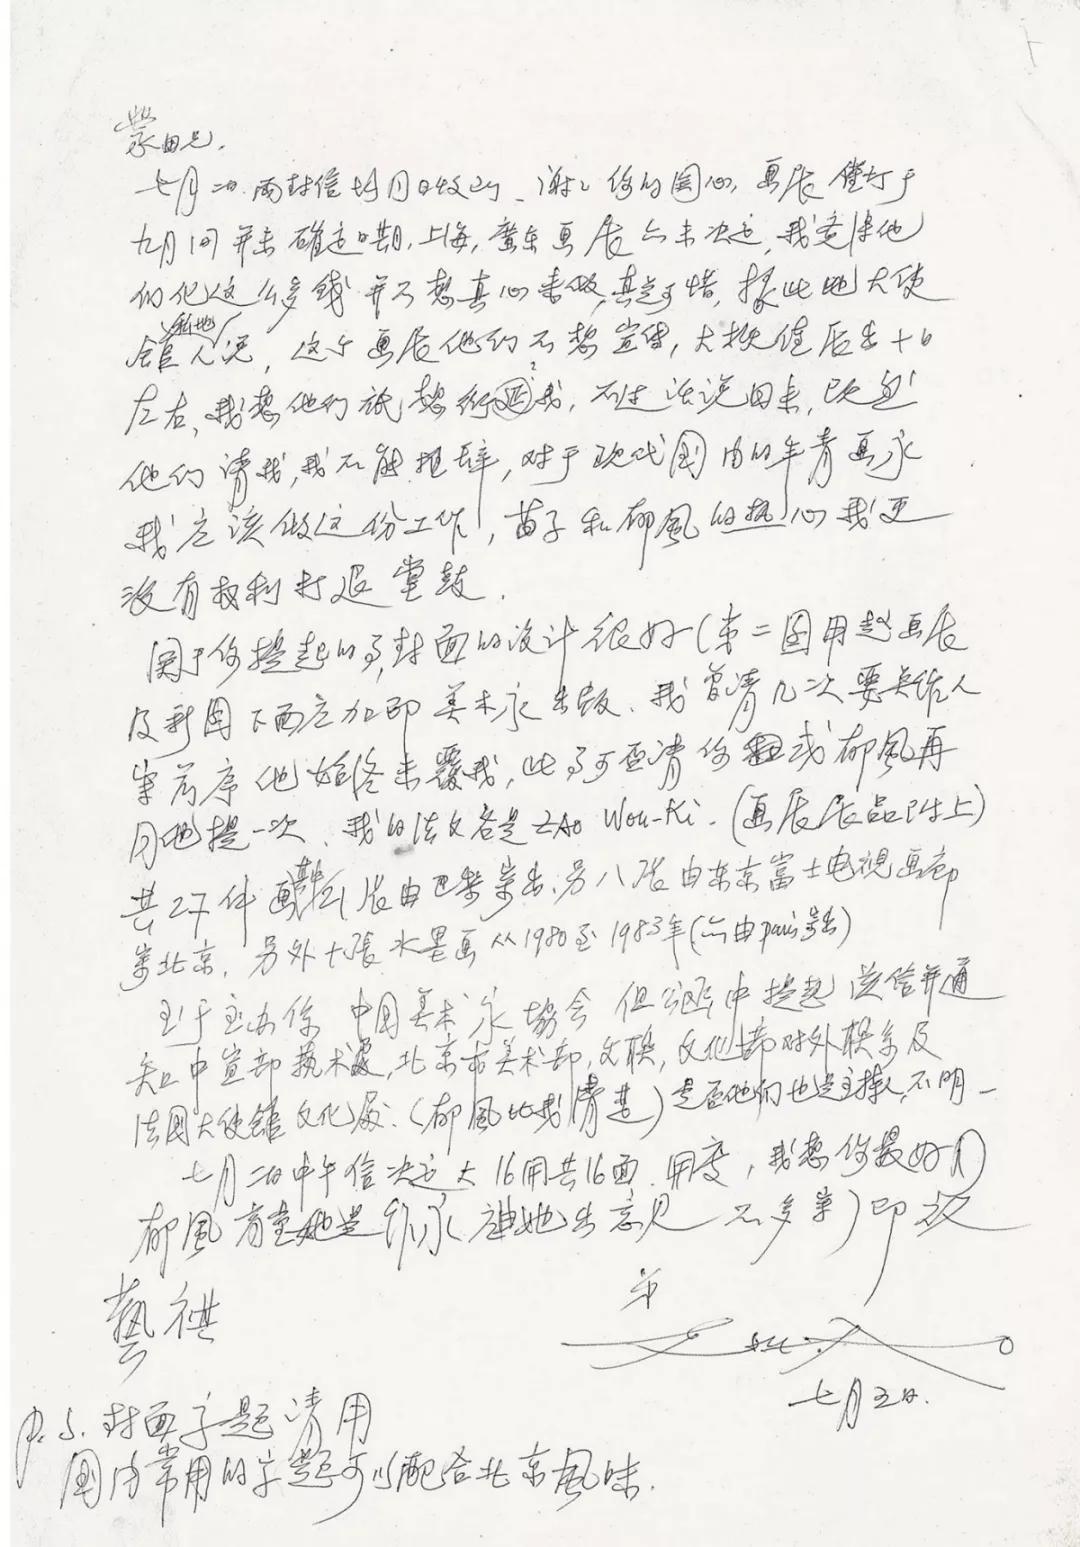 蒙田兄.
七月二日.两封信均同日收到、谢谢你的关心,画展仅订于
九月间并未确定日期,上海,广东画展亦未决定,我觉得他
们化这么多钱并不想真心来做,甚是可惜,据此地大使
馆人说,这个画展他们不想宣传,大概值后出十日
左右、我想他们祇想 我,不过话说回来,既然
他们请我,我不能推辞,对于现代国内的年青画家
我应该做这份工作,苗子和郁风的热心我更
没有权利打退堂鼓.
关于你提起的事,封面的设计很好(第二图用赵画展
及新图下面应加印美术家出版、我曾请几次要吴作人
写前序他始终未覆我,此事可否请你 或郁风再
同他提一次、我的法文名是ZAO Wou-Ki.(画展展品附上)
共27件画 21张由巴黎寄出,另八张由东京富士电视画廊
寄北京.另外十张水墨画从1980至1983年(亦由paris寄出)
至于主办系中国美术家协会但公函中提起送信并通
知中宣部艺术处,北京市美术部,文联,文化部对外联系及
法国大使馆文化处.(郁风比我清楚)是否他们也是主持人,不明、
七月二日中午信决定大16开共16面 开度,我想你最好同
郁风商量她是作家(请她出意见 不多写)即颂
艺祺
弟
无极
七月五日.
P.S.封面字题请用
国内常用的字题可以配合北京风味.